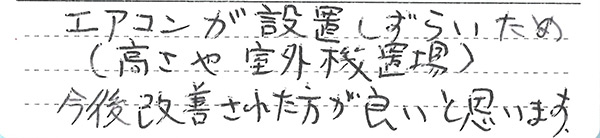 エアコンが設置しずらいため
(高さや室外機置場)
今後改善された方が良いと思います